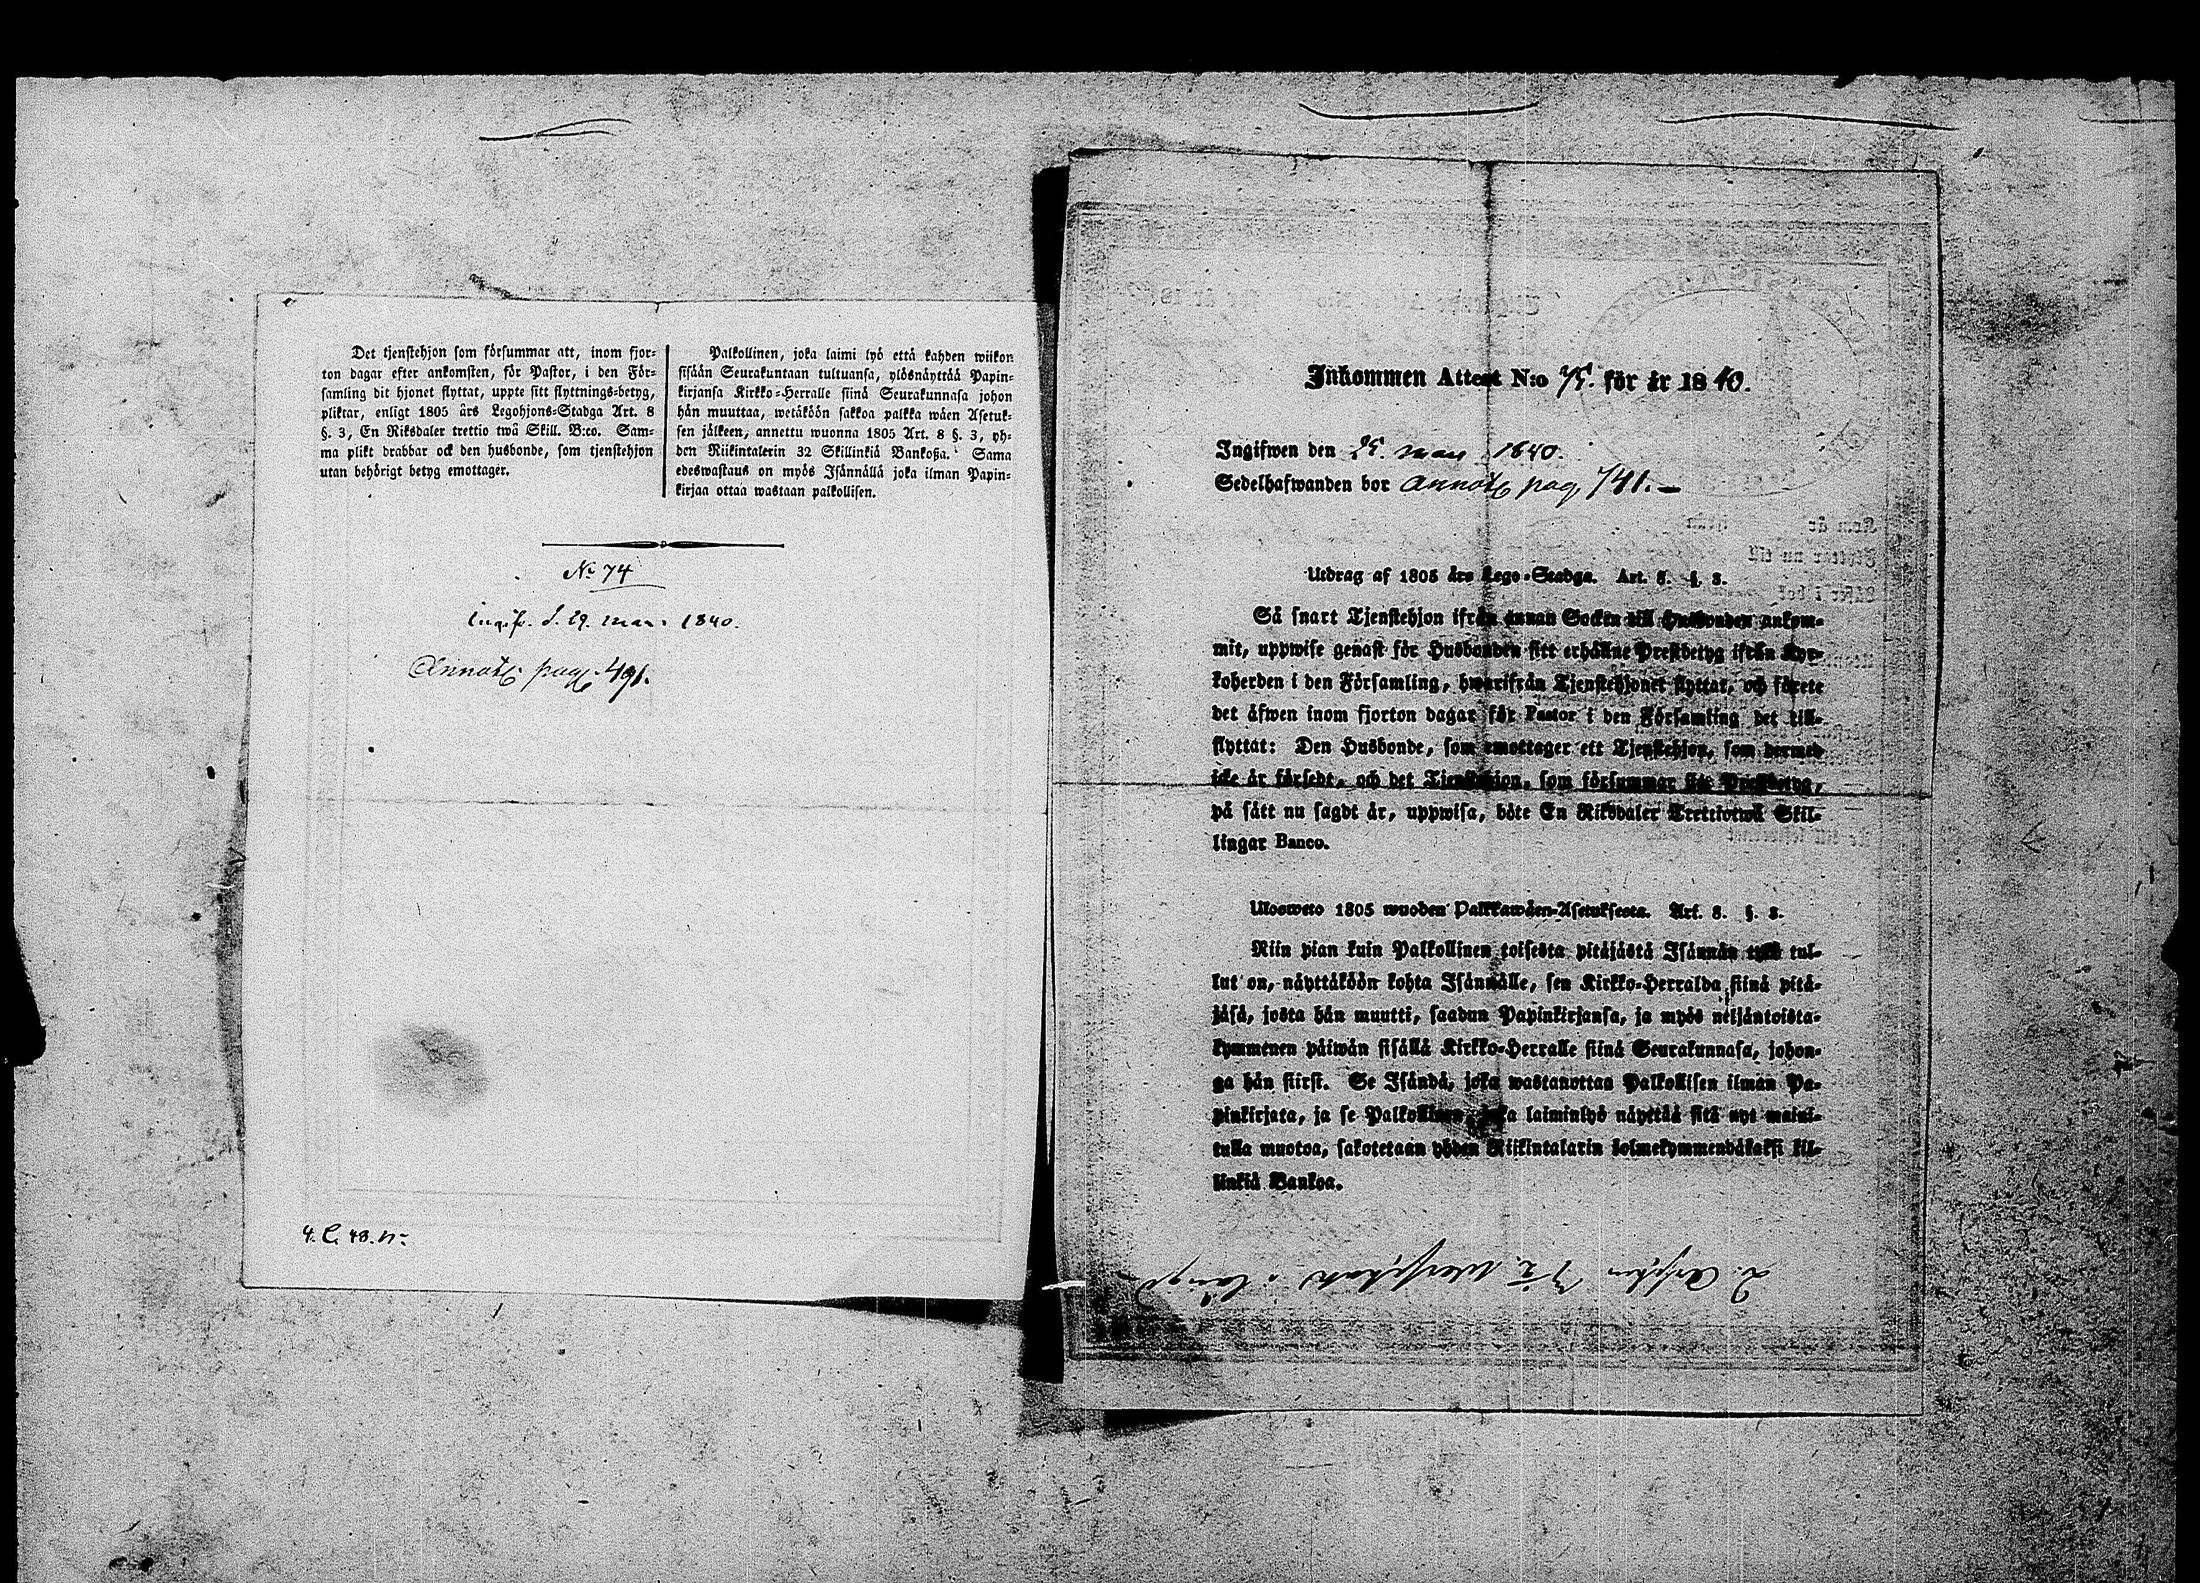 Det tjenstehjon som försummar att, inom fjor-
ton dagar efter ankomsten, för Pastor, i den För-
samling dit hjonet flyttat, uppte sitt flyttnings-betyg,
pliktar, enligt 1805 års Legohjons-Stadga Art. 8
§. 3, En Riksdaler trettio twå Skill. B:co. Sam-
ma plikt drabbar ock den husbonde, som tjenstehjon
utan behörigt betyg emottager.
Palkollinen, joka laimi lyö että kahden wiikon
sisään Seurakuntaan tultuansa, ylösnäyttää Papin-
kirjansa Kirkko-Herralle siinä Seurakunnasa johon
hän muuttaa, wetäköön sakkoa palkka wäen Asetuk-
sen jälkeen, annettu wuonna 1805 Art. 8 §. 3, yh-
den Riikintalerin 32 Skillinkiä Bankoßa. Sama
edeswastaus on myös Isännällä joka ilman Papin-
kirjaa ottaa wastaan palkollisen.
No 74
Ingifv. d. 29. mar. 1840.
Annot. pag. 491.
4. C. 48. n:
Inkommen Attest N:o 75. för år 1840.
Ingifwen den 1840.
Sedelhafwanden bor annot. pag. 741.
Utdrag af 1805 års Lego-Stadga. Art. 8. §. 3.
Så snart Tjenstehjon ifrån annan Socken till Husbonden ankom-
mit, uppwise genast för Husbonden sitt erhållne Prestbetyg ifrån Kyr-
koherden i den Församling, hwarifrån Tjenstehjonet flyttat, och förete
det äfwen inom fjorton dagar för Pastor i den Församling det till-
flyttat: Den Husbonde, som emottager ett Tjenstehjon, som dermed
icke är försedt, och det Tjenstehjon, som försummar sitt Prestbetyg,
på sätt nu sagdt är, uppwisa, böte En Riksdaler Trettiotwå Skil-
lingar Banco.
Ulosweto 1805 wuoden Palkkawäen-Asetuksesta. Art. 8. §. 3.
Niin pian kuin Palkollinen toisesta pitäjästä Isännän tygö tul-
lut on, näyttäköön kohta Isännälle, sen Kirkko-Herralda siinä pitä-
jäsä, josta hän muutti, saadun Papinkirjansa, ja myös neljäntoista-
kymmenen päiwän sisällä Kirkko-Herralle siinä Seurakunnasa, johon-
ga hän siirsi. Se Isändä, joka wastanottaa Palkollisen ilman Pa-
pinkirjata, ja se Palkollinen, joka laiminlyö näyttää sitä nyt mainit-
tulla muotoa, sakotetaan yhden Riikintalarin kolmekymmendäkaksi kil-
linkiä Bankoa.